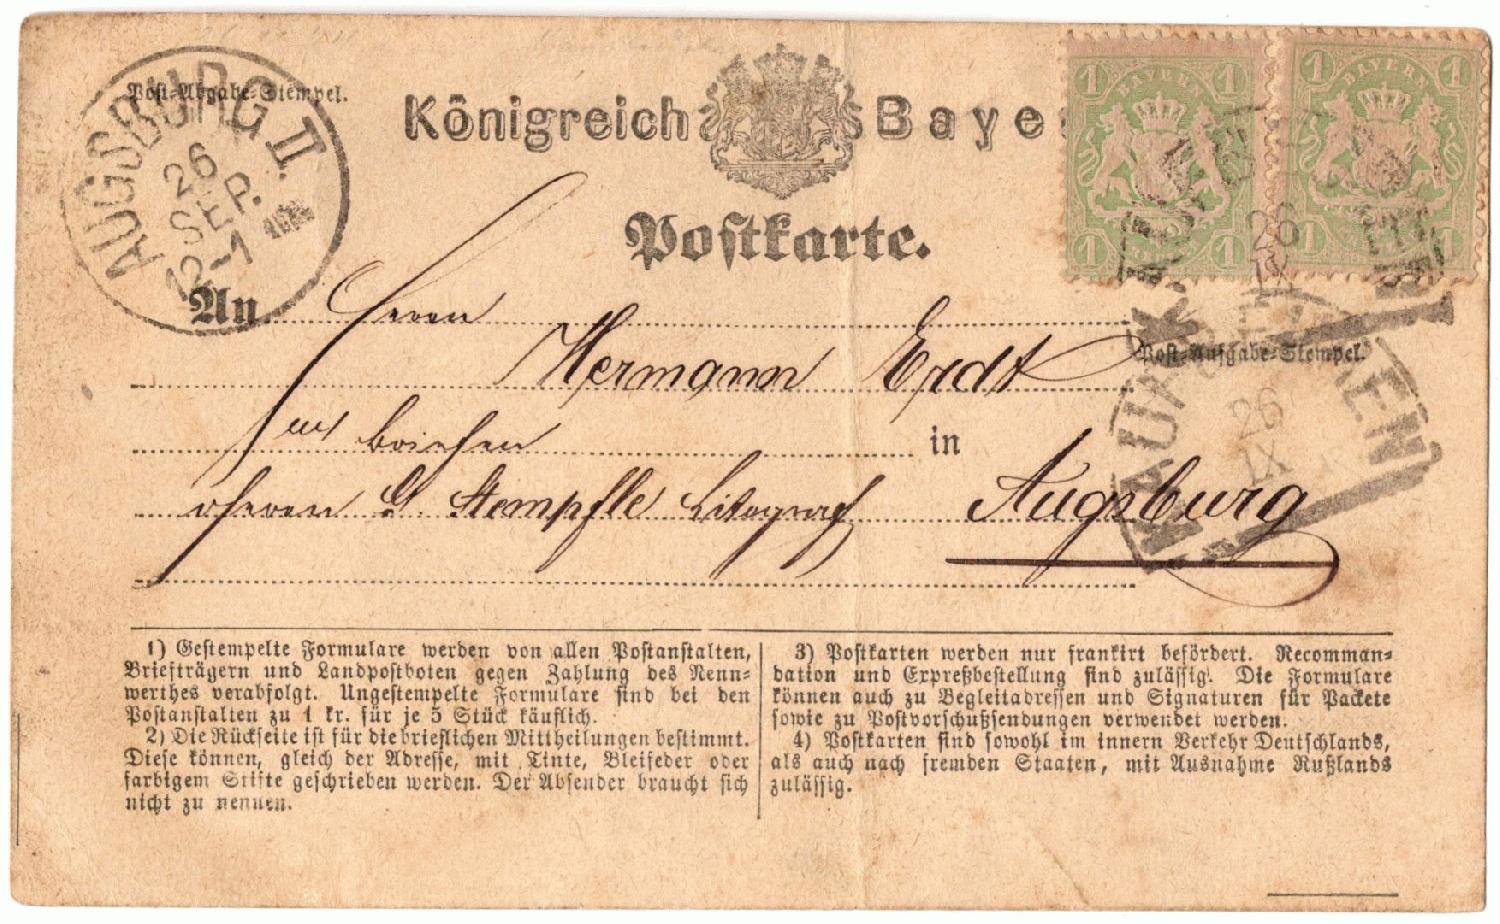 Post-Abgabe-Stempel.
AUGSBURG II
26
SEP.
12-1
Königreich Baye
Postkarte.
1 BAYERN 1
1 1
1 BAYERN 1
1
26
IX
Post-Aufgabe-Stempel.
26
IX
An Herrn
Hermann Erdt
in
Herrn G. Stempfle Litograf Augsburg
1) Gestempelte Formulare werden von allen Postanstalten,
Briefträgern und Landpostboten gegen Zahlung des Nenn-
werthes verabfolgt. Ungestempelte Formulare sind bei den
Postanstalten zu 1 kr. für je 5 Stück käuflich.
2) Die Rückseite ist für die brieflichen Mittheilungen bestimmt.
Diese können, gleich der Adresse, mit Tinte, Bleifeder oder
farbigem Stifte geschrieben werden. Der Absender braucht sich
nicht zu nennen.
3) Postkarten werden nur frankirt befördert. Recomman-
dation und Expreßbestellung sind zulässig. Die Formulare
können auch zu Begleitadressen und Signaturen für Packete
sowie zu Postvorschußsendungen verwendet werden.
4) Postkarten sind sowohl im innern Verkehr Deutschlands,
als auch nach fremden Staaten, mit Ausnahme Rußlands
zulässig.